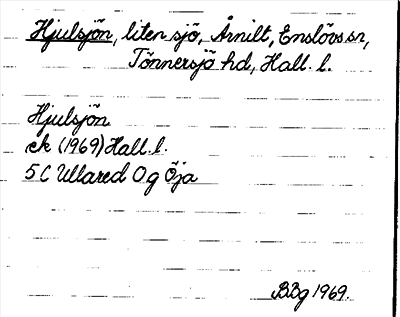 Hjulsjön, liten sjö, Årnilt, Enslövs sn,
Tönnersjö hd, Hall. l.
Hjulsjön
ek (1969) Hall. l.
5 C Ullared O g Öja
BBg 1969.